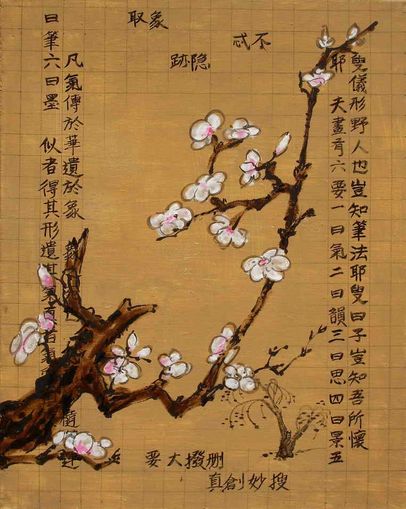 取象
不忒
隐跡
叟儀形野人也豈知筆法耶叟曰子豈知吾所懷
耶 夫畫有六要一曰氣二曰韻三曰思四曰景五
曰筆六曰墨
似者得其形遺其氣
凡氣傳於華遺於象
刪撥大要
搜妙創真